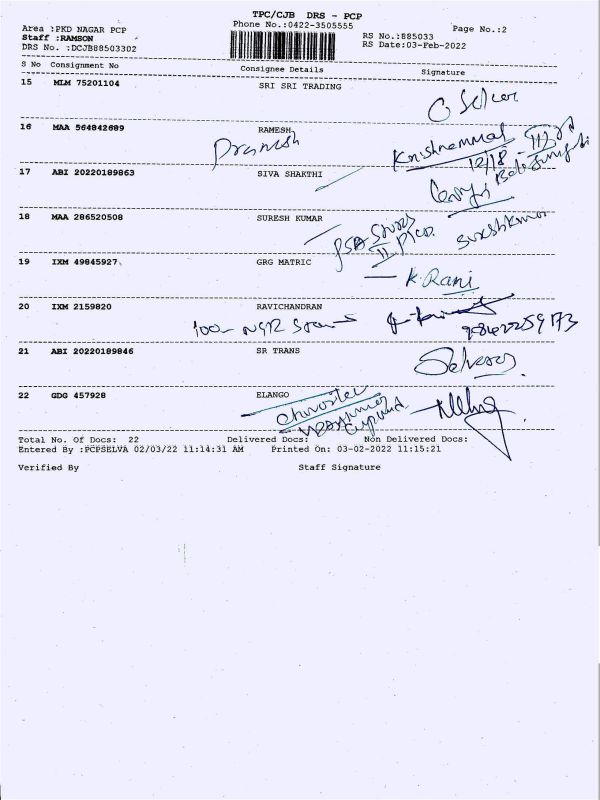 TPC/CJB DRS - PCP
Area :PKD NAGAR PCP Phone No.:0422-3505555 Page No.:2
Staff :RAMSON RS No.:885033
DRS No. :DCJB88503302 RS Date:03-Feb-2022
S No Consignment No Consignee Details Signature
15 MLM 75201104 SRI SRI TRADING
16 MAA 564842689 RAMESH
Pramesh Krishnammal
12/18
17 ABI 20220189863 SIVA SHAKTHI
18 MAA 286520508 SURESH KUMAR
Sureshkumar
19 IXM 49845927 GRG MATRIC
K. Rani
20 IXM 2159820 RAVICHANDRAN
100 NGR
21 ABI 20220189846 SR TRANS
22 GDG 457928 ELANGO
Total No. Of Docs: 22 Delivered Docs: Non Delivered Docs:
Entered By :PCPSELVA 02/03/22 11:14:31 AM Printed On: 03-02-2022 11:15:21
Verified By Staff Signature